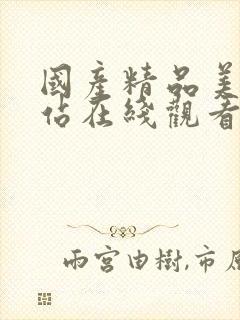 國産精品美
佔在綫觀看
雨宮由樹,市原